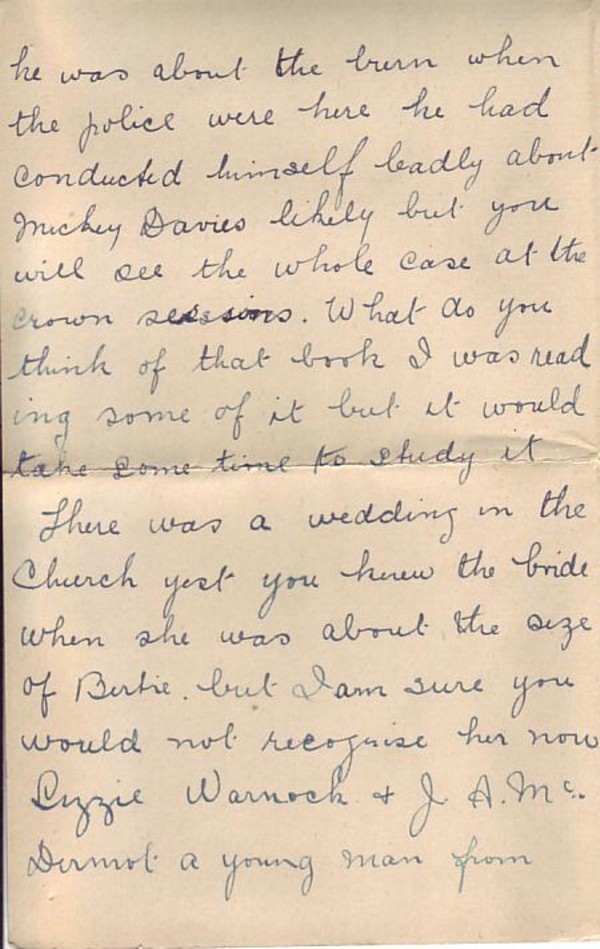 he was about the burn when
the police were here he had
conducted himself badly about
Mickey Davies likely but you
will see the whole case at the
crown sessions. What do you
think of that book I was read
ing some of it but it would
take some time to study it
There was a wedding in the
Church yest you knew the bride
when she was about the size
of Bertie. but I am sure you
would not recognise her now
Lizzie Warnock & J. A. Mc.
Dermot a young man from